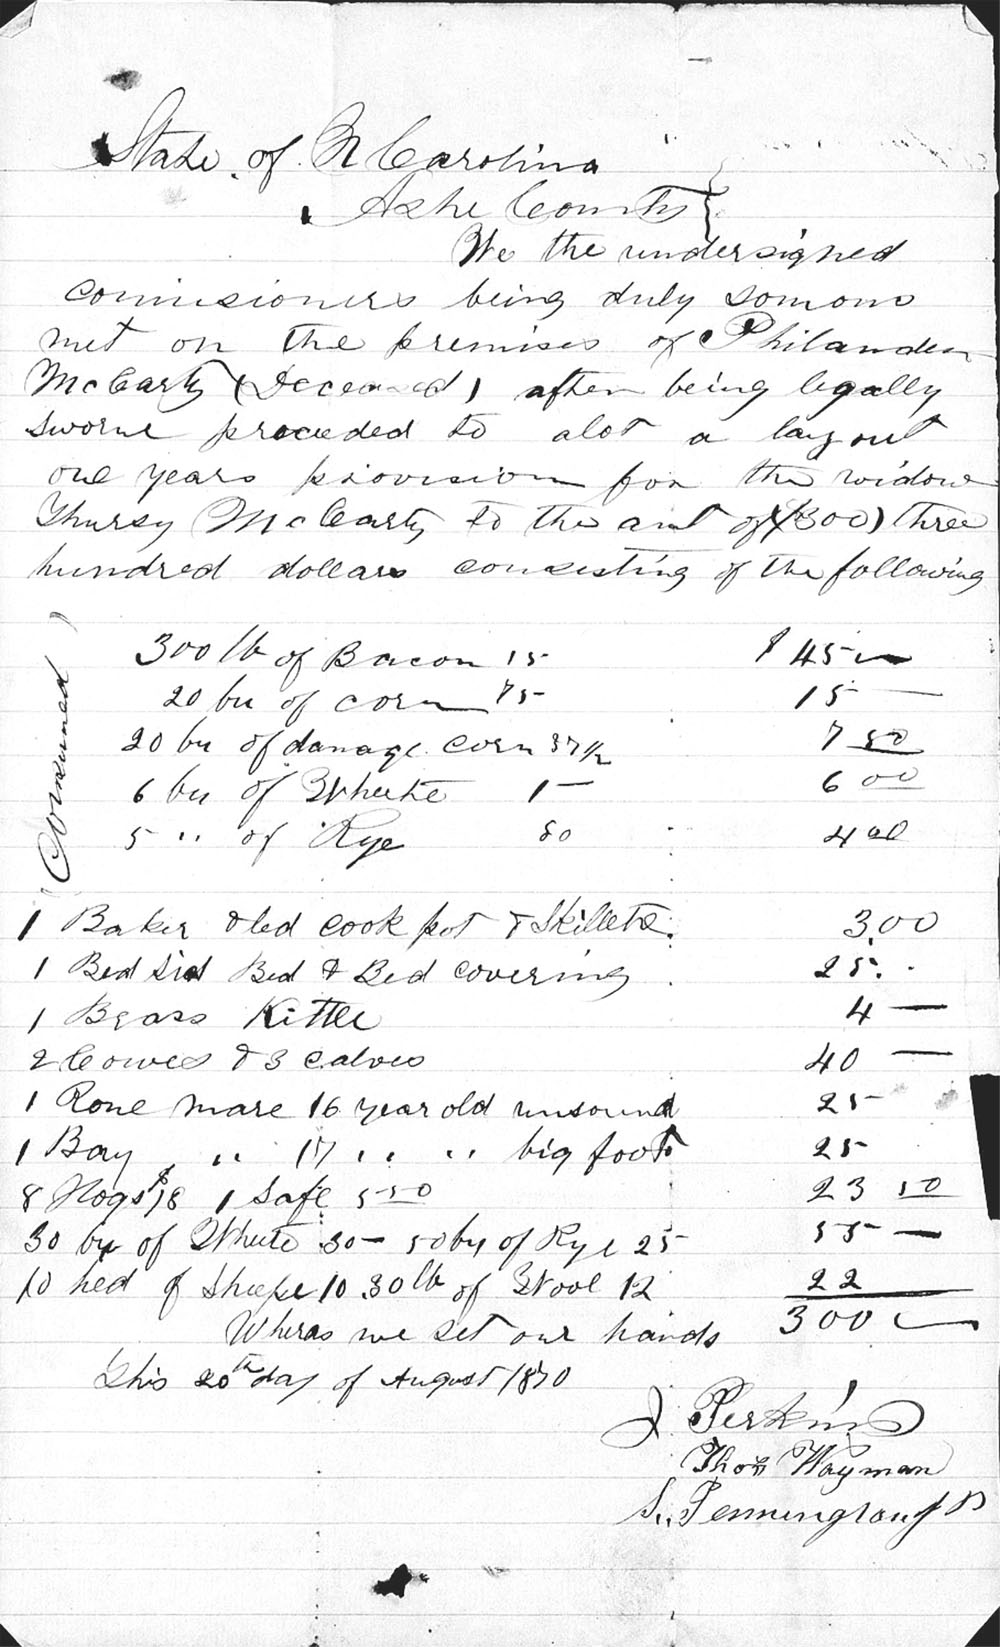 State of N Carolina
Ashe County
We the undersigned
comisioners being duly somons
met on the premises of Philander
McCarty (Deceased) after being legally
sworne proceded to alot a lay out
one years provision for the widow
Thursy McCarty to the amt of ($300) three
hundred dollars consisting of the following
300 lb of Bacon 15 $45 —
20 bu of corn 75 15 —
20 bu of damage corn 37 1/2 7 50
6 bu of Wheate 1 — 6 00
5 " of Rye 80 4 00
(Consumed)
1 Baker & led cook pot & Skillette. 3.00
1 Bed sid Bed & Bed covering 25.
1 Brass Kittle 4 —
2 Cowes & 3 calves 40 —
1 Rone mare 16 year old unsound 25
1 Bay " 17 " " big foot 25
8 Hogs $18 1 Safe 5 50 23 50
30 bu of Wheete 30 — 50 by of Rye 25 55 —
10 hed of Sheepe 10 30 lb of Wool 12 22
300
Wheras we set our hands
This 20th day of August 1870
J Perkins
Thos Wayman
S. Pennington J P